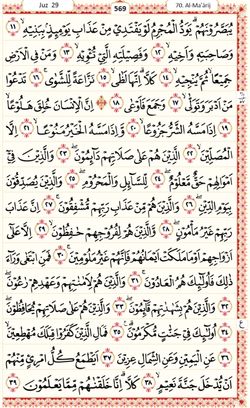 Juz 29 569 70. Al-Ma'ārij
يُبَصَّرُونَهُمْ ۚ يَوَدُّ الْمُجْرِمُ لَوْ يَفْتَدِي مِنْ عَذَابِ يَوْمِئِذٍ بِبَنِيهِ ﴿١١﴾
وَصَاحِبَتِهِ وَأَخِيهِ ﴿١٢﴾ وَفَصِيلَتِهِ الَّتِي تُؤْوِيهِ ﴿١٣﴾ وَمَنْ فِي الْأَرْضِ
جَمِيعًا ثُمَّ يُنْجِيهِ ﴿١٤﴾ كَلَّا ۖ إِنَّهَا لَظَىٰ ﴿١٥﴾ نَزَّاعَةً لِلشَّوَىٰ ﴿١٦﴾ تَدْعُو
مَنْ أَدْبَرَ وَتَوَلَّىٰ ﴿١٧﴾ وَجَمَعَ فَأَوْعَىٰ ﴿١٨﴾ إِنَّ الْإِنْسَانَ خُلِقَ هَلُوعًا
﴿١٩﴾ إِذَا مَسَّهُ الشَّرُّ جَزُوعًا ﴿٢٠﴾ وَإِذَا مَسَّهُ الْخَيْرُ مَنُوعًا ﴿٢١﴾ إِلَّا
الْمُصَلِّينَ ﴿٢٢﴾ الَّذِينَ هُمْ عَلَىٰ صَلَاتِهِمْ دَائِمُونَ ﴿٢٣﴾ وَالَّذِينَ فِي
أَمْوَالِهِمْ حَقٌّ مَعْلُومٌ ﴿٢٤﴾ لِلسَّائِلِ وَالْمَحْرُومِ ﴿٢٥﴾ وَالَّذِينَ يُصَدِّقُونَ
بِيَوْمِ الدِّينِ ﴿٢٦﴾ وَالَّذِينَ هُمْ مِنْ عَذَابِ رَبِّهِمْ مُشْفِقُونَ ﴿٢٧﴾ إِنَّ عَذَابَ
رَبِّهِمْ غَيْرُ مَأْمُونٍ ﴿٢٨﴾ وَالَّذِينَ هُمْ لِفُرُوجِهِمْ حَافِظُونَ ﴿٢٩﴾ إِلَّا عَلَىٰ
أَزْوَاجِهِمْ أَوْ مَا مَلَكَتْ أَيْمَانُهُمْ فَإِنَّهُمْ غَيْرُ مَلُومِينَ ﴿٣٠﴾ فَمَنِ ابْتَغَىٰ وَرَاءَ
ذَٰلِكَ فَأُولَٰئِكَ هُمُ الْعَادُونَ ﴿٣١﴾ وَالَّذِينَ هُمْ لِأَمَانَاتِهِمْ وَعَهْدِهِمْ رَاعُونَ
﴿٣٢﴾ وَالَّذِينَ هُمْ بِشَهَادَاتِهِمْ قَائِمُونَ ﴿٣٣﴾ وَالَّذِينَ هُمْ عَلَىٰ صَلَاتِهِمْ يُحَافِظُونَ
﴿٣٤﴾ أُولَٰئِكَ فِي جَنَّاتٍ مُكْرَمُونَ ﴿٣٥﴾ فَمَالِ الَّذِينَ كَفَرُوا قِبَلَكَ مُهْطِعِينَ ﴿٣٦﴾
عَنِ الْيَمِينِ وَعَنِ الشِّمَالِ عِزِينَ ﴿٣٧﴾ أَيَطْمَعُ كُلُّ امْرِئٍ مِنْهُمْ
أَنْ يُدْخَلَ جَنَّةَ نَعِيمٍ ﴿٣٨﴾ كَلَّا ۖ إِنَّا خَلَقْنَاهُمْ مِمَّا يَعْلَمُونَ ﴿٣٩﴾